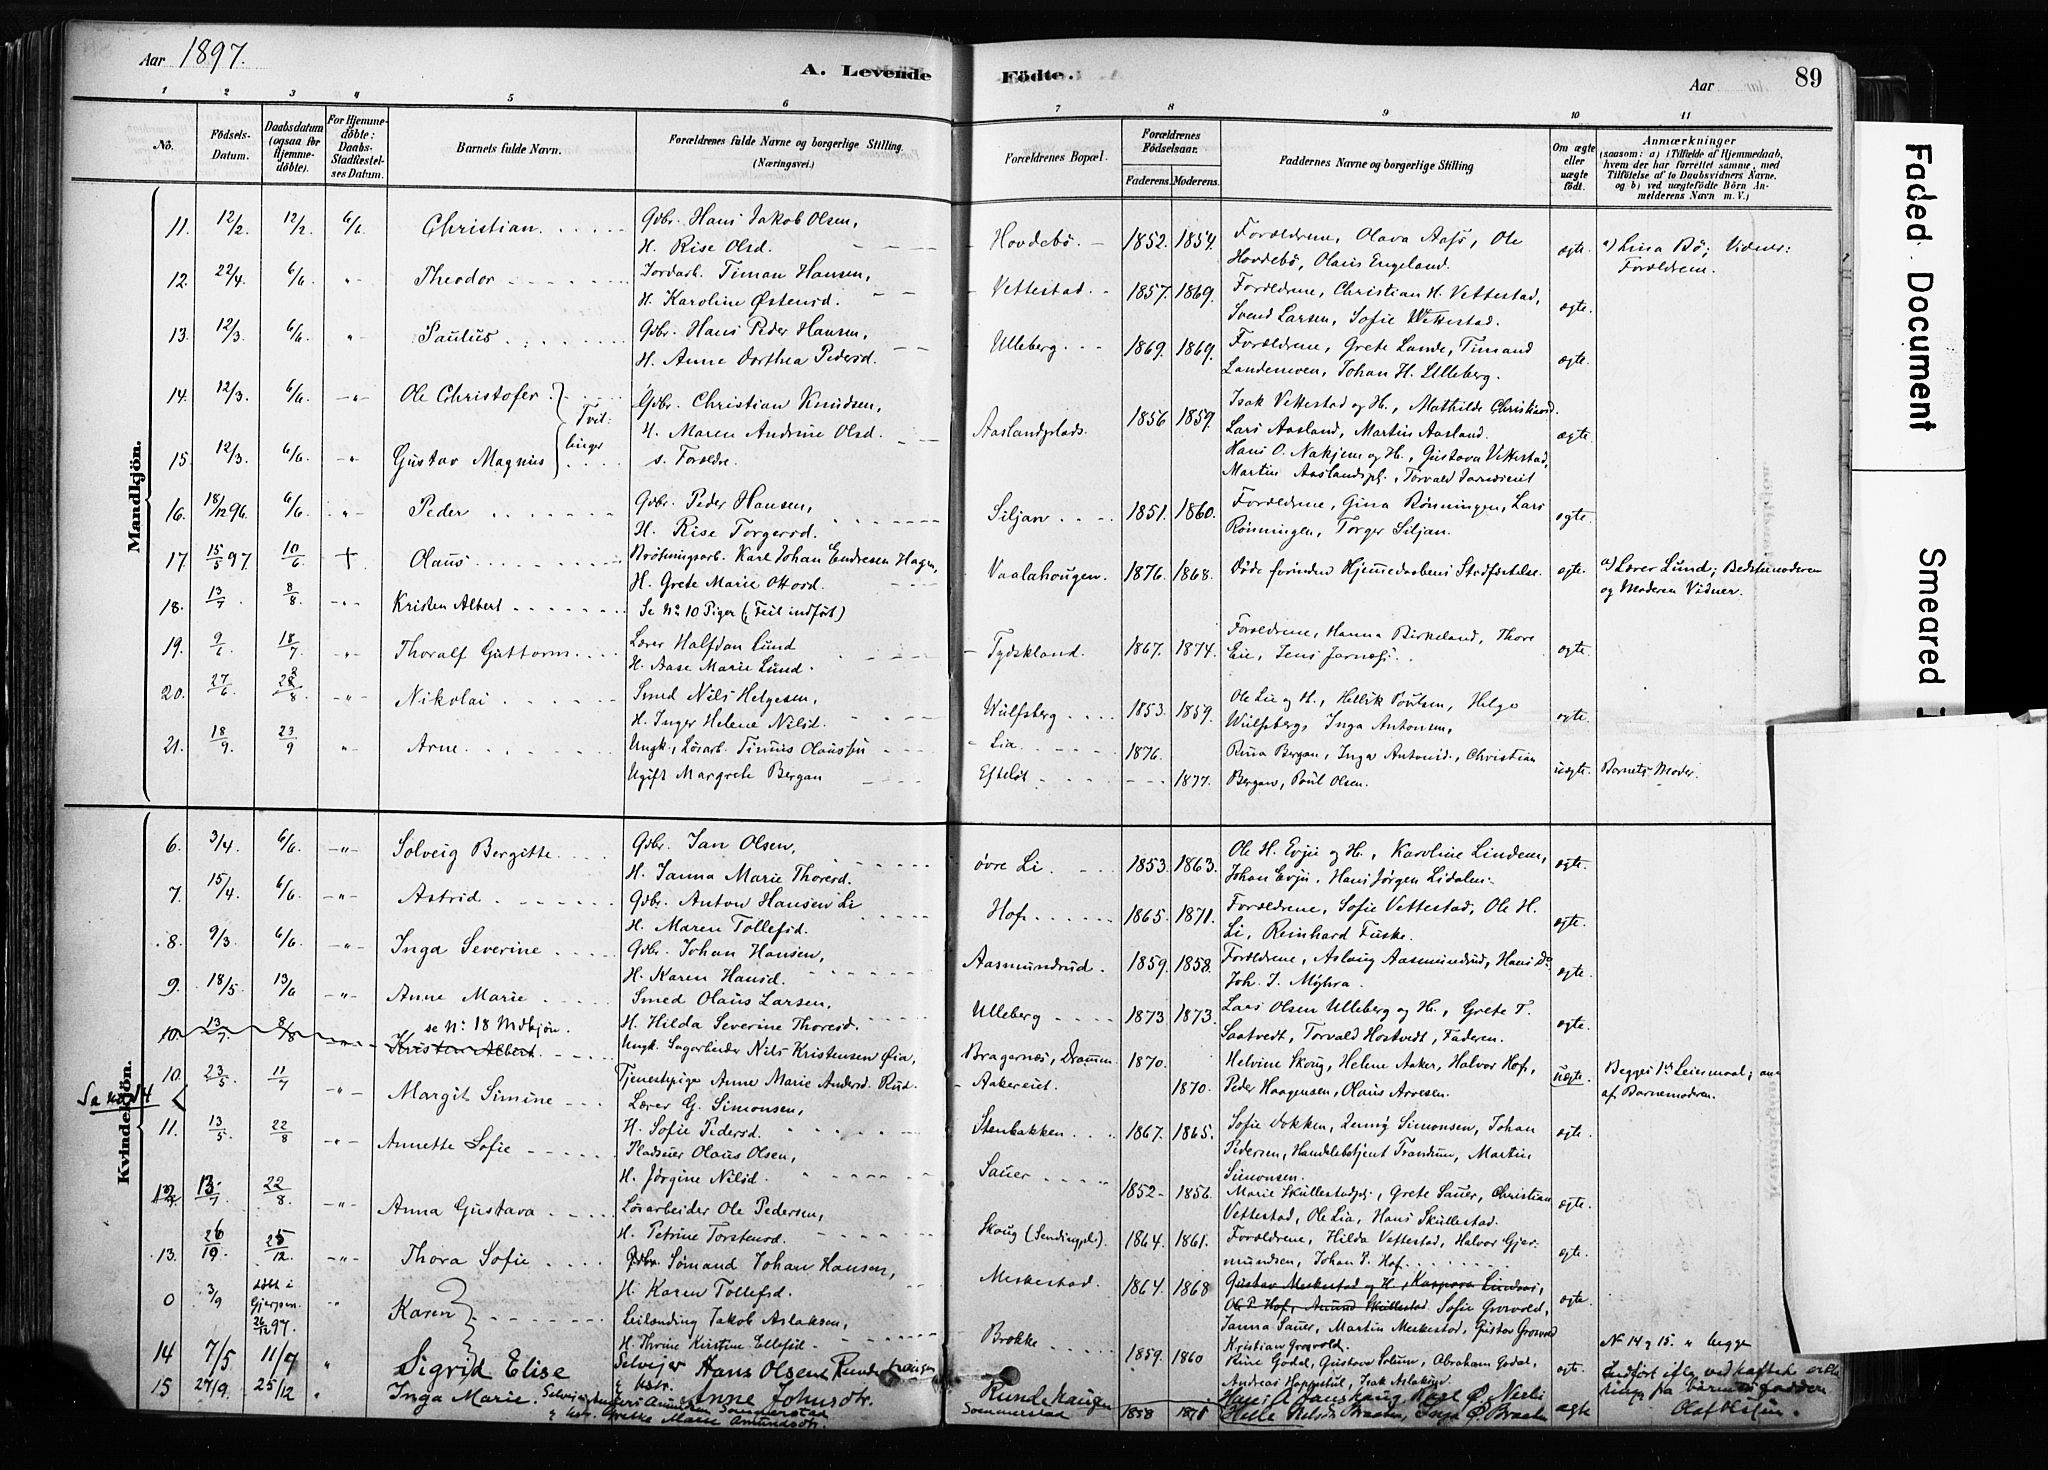 Aar 1897.
A. Levende Födte.
Aar
89
1 2 3 4 5 6 7 8 9 10 11
No.
Födsels-Datum.
Daabsdatum (ogsaa for Hjemmedöbte).
For Hjemmedöbte: Daabs-Stadfæstelses Datum.
Barnets fulde Navn.
Forældrenes fulde Navne og borgerlige Stilling. (Næringsvei.)
Forældrenes Bopæl.
Forældrenes Födselsaar.
Faderens. Moderens.
Faddernes Navne og borgerlige Stilling
Om ægte eller uægte födt.
Anmærkninger (saasom: a) i Tilfælde af Hjemmedaab, hvem der har forrettet samme, med Tilföielse af to Daabsvidners Navne. og b) ved uægtefödte Börn Anmelderens Navn m. V.;
Mandkjön.
11. 12/2 12/2 6/6 Christian. Gdbr. Hans Jakob Olsen, H. Rise Olsd. Hovdebö. 1852. 1854. Forældrene, Olava Aasö, Ole Hovdebö, Olaus Engeland. ægte. a) Lina Bö; Vidner: Forældrene.
12. 22/4 6/6 " Theodor Jordarb. Timan Hansen, H. Karoline Østensd. Vettestad. 1857. 1869. Forældrene, Christian H. Vettestad, Svend Larsen, Sofie Vettestad. ægte.
13. 12/3 6/6 " Paulus Gdbr. Hans Peder Hansen, H. Anne Dorthea Pedersd. Ulleberg. 1869. 1869. Forældrene, Grete Lande, Timand Landemoen, Johan H. Ulleberg. ægte.
14. 12/3 6/6 " Ole Christofer Gdbr. Christian Knudsen, H. Maren Andrine Olsd. Aaslandplads. 1856 1859. Isak Vettestad og H., Mathilde Christiansd. Lars Aasland, Martin Aasland. ægte.
Tvillinger
15. 12/3 6/6 " Gustav Magnus s. Forældre. Hans O. Nakjem og H., Gustava Vettestad, Martin Aaslandspl.
16. 18/12 96. 6/6 " Peder Gdbr. Peder Hansen, H. Rise Torgersd. Siljan 1851. 1860. Forældrene, Gina Rønningen, Lars Rønningen, Torger Siljan. ægte.
17. 15/5 97. 10/6 + Olaus Brøtningsarb. Karl Johan Endresen Hagen, H. Grete Marie Ottosd. Vaalahougen. 1876. 1868. Døde forinden Hjemmedaabens Stadfæstelse. ægte. a) Lærer Lund; Bedstemoderen og Moderen Vidner.
18. 13/7 8/8 " Kristen Albert Se No 10 Piger (Feil indført)
19. 9/6 18/7 " Thoralf Guttorm Lærer Halfdan Lund H. Aase Marie Lund. Tydskland. 1867. 1874. Forældrene, Hanna Birkeland, Thore Eie, Jens ægte.
20. 27/6 22/8 " Nikolai Smed Nils Helgesen, H. Inger Helene Nilsd. Wulfsberg 1853. 1859. Ole Lie og H., Hellik Poulsen, Helge Wulfsberg, Inga Antonsen, ægte.
21. 18/9. 23/9 " Arne Ungk., Løsarb. Timus Olaussen Lia 1876. Ugift Margrete Bergan Efteløt 1877. Rina Bergan, Inga Antonsd., Christian Bergan, Poul Olsen. uægte. Barnets Moder.
Kvindekjön.
6. 3/4. 6/6 " Solveig Bergitte Gdbr. Jan Olsen, H. Janna Marie Thoresd. övre Li. 1853. 1863. Ole H. Evju og H., Karoline Lindem, Johan Evju, Hans Jørgen Lidalen. ægte.
7. 15/4 6/6 " Astrid Gdbr. Anton Hansen Li H. Maren Tollefsd. Hof 1865. 1871. Forældrene, Sofie Vettestad, Ole H. Li, Reinhard Fuske. ægte.
8. 9/3 6/6 " Inga Severine Gdbr. Johan Hansen, H. Karen Hansd. Aasmundrud. 1859. 1858. Forældrene, Aslaug Aasmundrud, Hans Do Joh. J. Myhra. ægte.
9. 18/5 13/6 " Anne Marie Smed Olaus Larsen, H. Hilda Severine Thoresd. Ulleberg 1873 1873. Lars Olsen Ulleberg og H., Grete T. Saatvedt, Torvald Hostvedt, Faderen. ægte.
10. 13/7. 8/8 " se No 18 Mdkjön. Kristen Albert
10. 23/5. 11/7 " Margit Simine Ungk. Sagarbeider Nils Kristensen Øia, Tjenestepige Anne Marie Andersd. Rud. Bragernæs, Drammen 1870. Aakereiet. 1870. Helvine Skoug, Helene Aaker, Halvor Hof, Peder Haagensen, Olaus Arvesen. uægte. Begges 1ste Leiermaal; af Barnemoderen.
11. 13/5 22/8 " Annette Sofie Lærer G. Simonsen, H. Sofie Pedersd. Stenbakken 1867. 1865. Sofie Dokken, Jenny Simonsen, Johan Pedersen, Handelsbetjent Trandum, Martin Simonsen. ægte.
12 13/7 22/8. " Anna Gustava Pladseier Olaus Olsen, H. Jørgine Nilsd. Sauer 1852 1856. Marie Skullestadpl., Grete Sauer, Christian Vettestad, Ole Lia, Hans Skullestad. ægte.
13. 26/10. 25/12. " Thora Sofie Løsarbeider Ole Pedersen, H. Petrine Torstensd. Skoug (Sendingpl.). 1864. 1861. Forældrene, Hilda Vettestad, Halvor Gjermundsen, Johan P. Hof. ægte.
0 3/9 døbt i Gjerpen 26/12 97. " Karen Gdbr. Sømand Johan Hansen, H. Karen Tollefsd. Meskestad. 1864 1868 Gustav Meskestad og H., Kaspara Lindaas, Ole P. Hof, Amund Skullestad Sofie Grosvold, Janna Sauer, Martin Meskestad, Gustav Grosvold Kristian Grosvold. ægte.
Leilending Jakob Aslaksen, H. Thrine Kirstine Ellefsd. Brokke 1859. 1860 Rine Godal, Gustava Solum, Abraham Godal, Andreas Isak Aslaksen. ægt.
14 7/5 11/7 " Sigrid Elise Selveier Hans Olsen Rundehaugen Hustr. Anne Johnsdtr. Rundehaugen Karl Ø. No 14 og 15. begge
15 27/9. 25/12 " Inga Marie. Selveier Anders Amundsen Sommerstad Hustr. Grethe Marie Amundsdtr. Sommerstad 1858 1871 ægte
Faded Document
Smeared